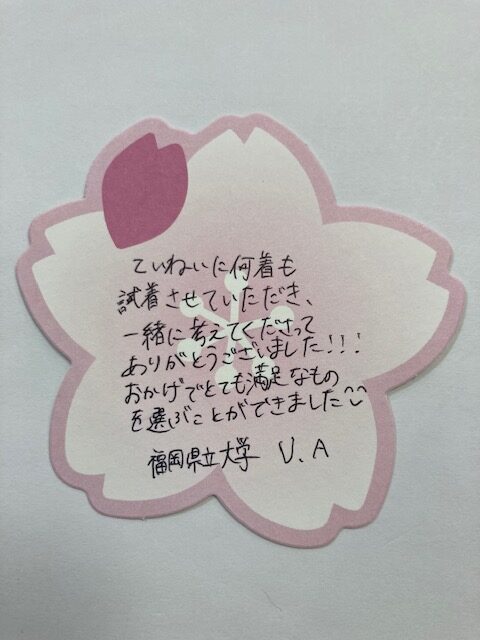 ていねいに何着も
試着させていただき、
一緒に考えてくださって
ありがとうございました!!!
おかげでとても満足なもの
を選ぶことができました^^
福岡県立大学 V.A